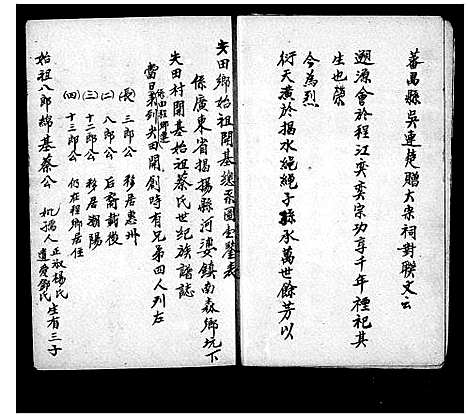 蕃禺縣吳連楚贈大宗祠對聯文云
溯源會於程江奕奕宗功享千年禋祀其
生也榮
今為烈
衍天潢於揭水繩繩子孫永萬世餘芳以
失田鄉始祖開基總系圖全鑒表
係廣東省揭揚縣河婆鎮南森鄉坑下
失田村開基始祖蔡氏世紀族譜誌
當日來到失田開創時有兄弟四人列左
(長) 三郎公 移居惠州
(二) 八郎公 后裔載後
(三) 十二郎公 移居潮陽
(四) 十三郎公 仍在程鄉居住
始祖八郎諱基蔡公
孺人 正淑楊氏 遺愛鄧氏 生有三子